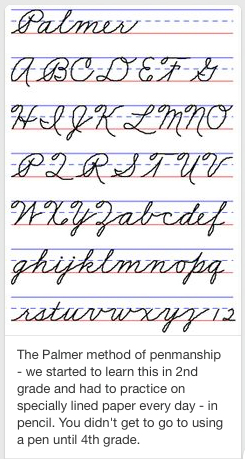 Palmer
A B C D E F G
H I J K L M N O
P Q R S T U V
W X Y Z a b c d e f
g h i j k l m n o p q
r s t u v w x y z 1 2
The Palmer method of penmanship
- we started to learn this in 2nd
grade and had to practice on
specially lined paper every day - in
pencil. You didn't get to go to using
a pen until 4th grade.